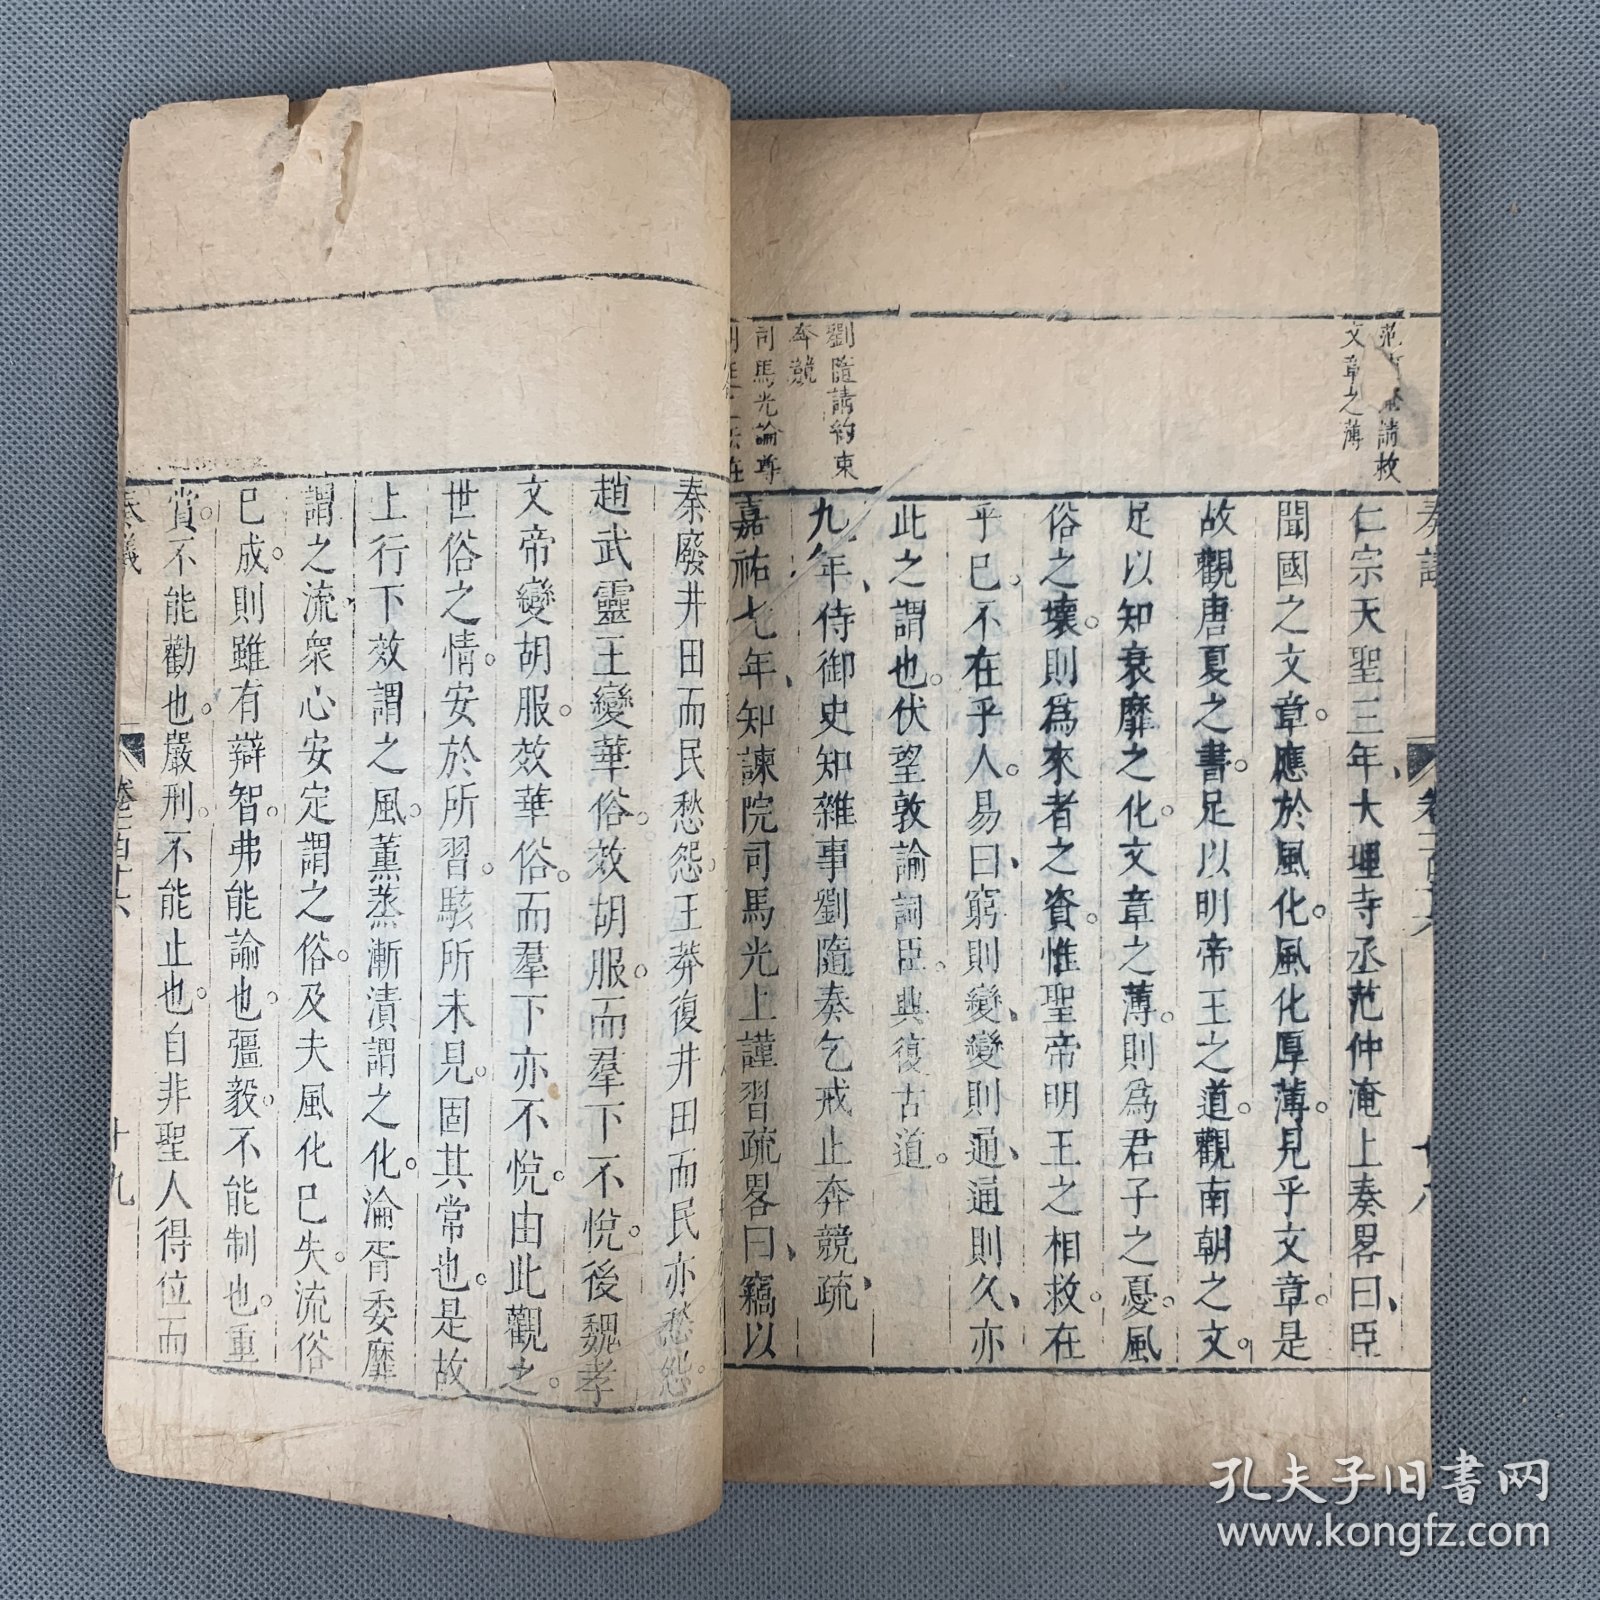 奏議
卷二百十六
十八
請救
文章之薄
仁宗天聖三年、大理寺丞范仲淹上奏畧曰、臣
聞國之文章。應於風化。風化厚薄。見乎文章。是
故觀唐夏之書。足以明帝王之道。觀南朝之文。
足以知衰靡之化。文章之薄。則爲君子之憂。風
俗之壞。則爲來者之資。惟聖帝明王之相救。在
乎巳。不在乎人。易曰、窮則變、變則通、通則久、亦
此之謂也。伏望敦諭詞臣。興復古道。
劉隨請約束
奔競
九年、侍御史知雜事劉隨奏乞戒止奔競疏、
司馬光論尊
嘉祐七年、知諫院司馬光上謹習疏畧曰、竊以
秦廢井田而民愁怨。王莽復井田而民亦愁怨。
趙武靈王變華俗。效胡服。而羣下不悅。後魏孝
文帝變胡服。效華俗。而羣下亦不悅。由此觀之。
世俗之情。安於所習。駭所未見。固其常也。是故
上行下效謂之風。薰蒸漸漬謂之化。淪胥委靡
謂之流。衆心安定謂之俗。及夫風化巳失。流俗
巳成。則雖有辯智。弗能諭也。彊毅。不能制也。重
賞。不能勸也。嚴刑。不能止也。自非聖人得位而
奏議
十九
孔夫子旧书网
www.kongfz.com